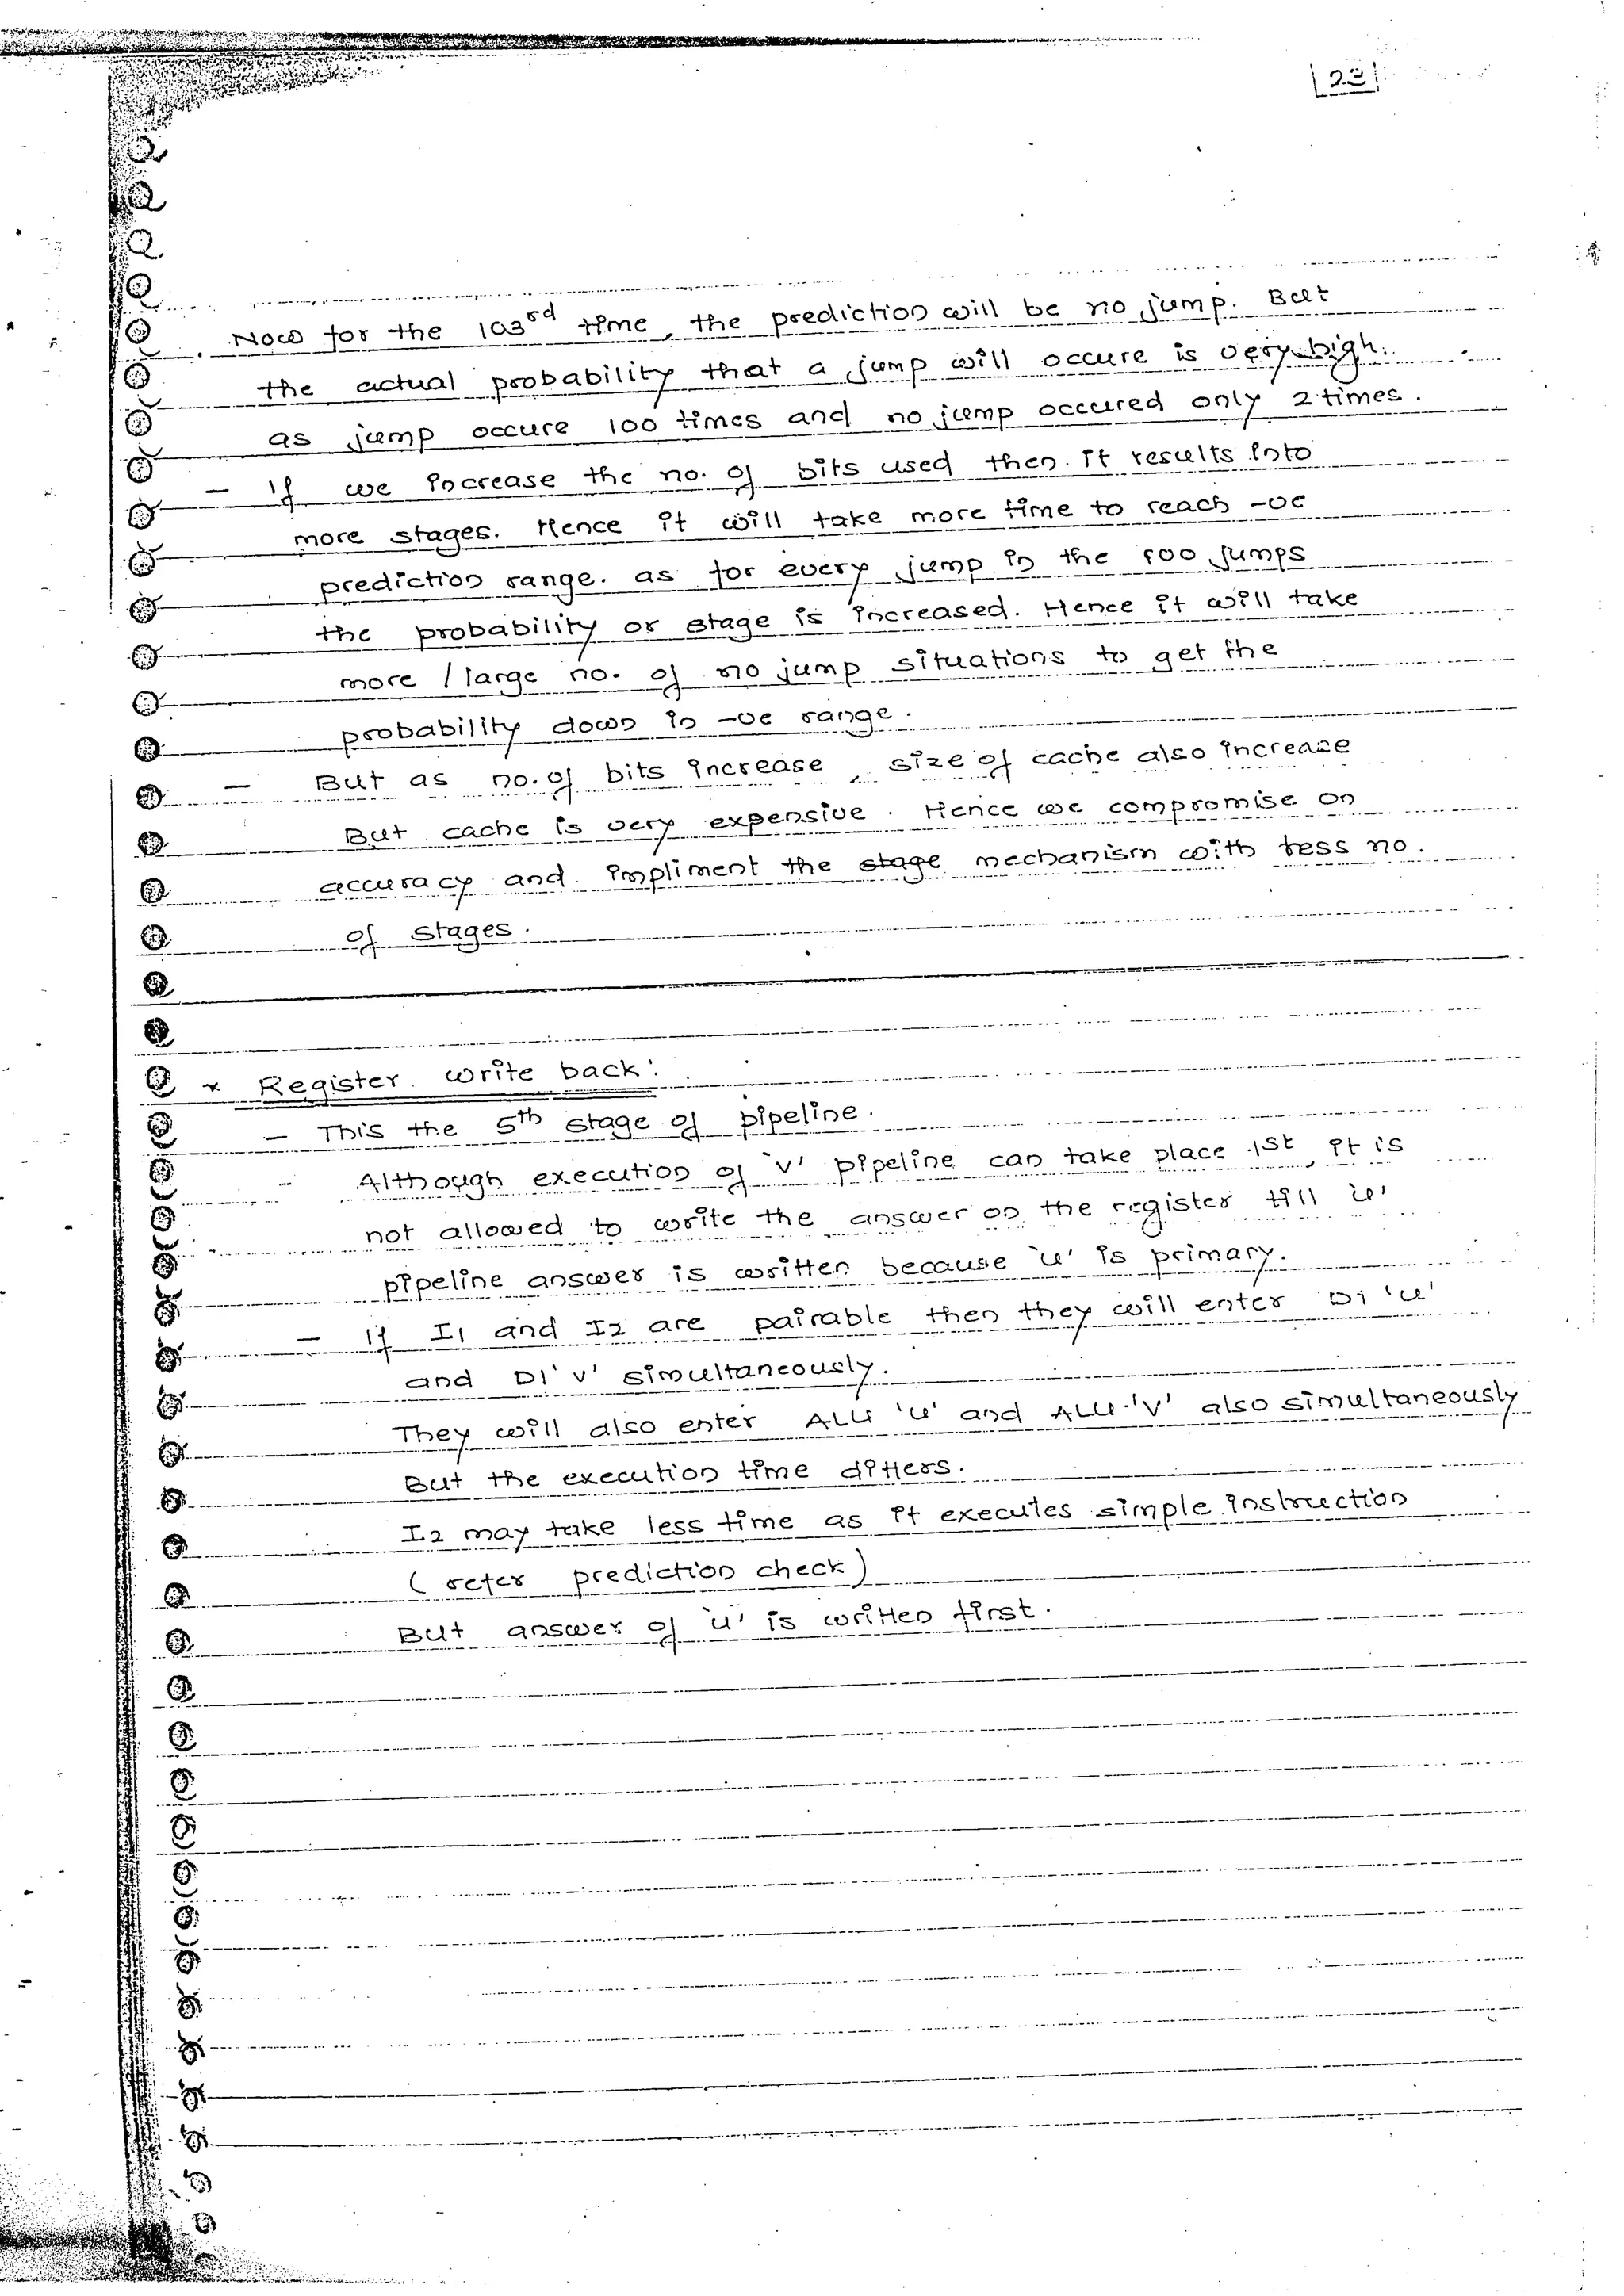 23
Now for the 103rd time, the prediction will be no jump. But
the actual probability that a jump will occure is very high.
as jump occure 100 times and no jump occured only 2 times.
- If we increase the no. of bits used then it results into
more stages. Hence it will take more time to reach -ve
prediction range. as for every jump in the 100 jumps
the probability or stage is increased. Hence it will take
more / large no. of no jump situations to get the
probability down in -ve range.
- But as no. of bits increase, size of cache also increase
But cache is very expensive. Hence we compromise on
accuracy and impliment the stage mechanism with less no.
of stages.
* Register write back:
- This the 5th stage of pipeline.
- Although execution of 'v' pipeline can take place 1st, it is
not allowed to write the answer on the register till 'u'
pipeline answer is written because 'u' is primary.
- If I1 and I2 are pairable then they will enter D1 'u'
and D1 'v' simultaneously.
They will also enter ALU 'u' and ALU-'v' also simultaneously
But the execution time differs.
I2 may take less time as it executes simple instruction
(refer prediction check)
But answer of 'u' is written first.